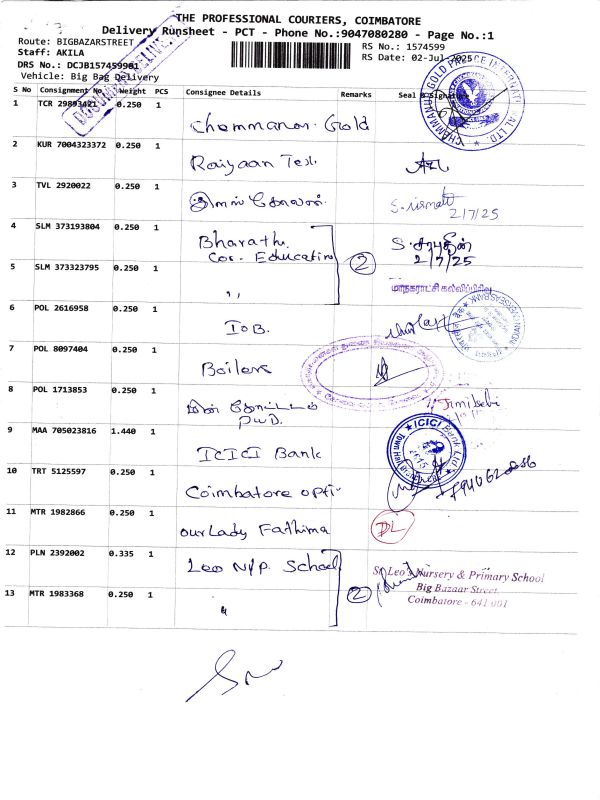 THE PROFESSIONAL COURIERS, COIMBATORE
Delivery Runsheet - PCT - Phone No.:9047080280 - Page No.:1
Route: BIGBAZARSTREET
RS No.: 1574599
Staff: AKILA
RS Date: 02-Jul-2025
DRS No.: DCJB157459901
Vehicle: Big Bag Delivery
S No Consignment No. Weight PCS Consignee Details Remarks Seal & Signature
1 TCR 29893421 0.250 1 Chemmanor Gold
2 KUR 7004323372 0.250 1 Raiyaan Tex.
3 TVL 2920022 0.250 1
2/7/25
4 SLM 373193804 0.250 1 Bharathi
Cor. Education
2
2/7/25
5 SLM 373323795 0.250 1 ,,
6 POL 2616958 0.250 1 IOB.
7 POL 8097404 0.250 1 Boilers
8 POL 1713853 0.250 1
PWD.
9 MAA 705023816 1.440 1 ICICI Bank
ICICI Bank Ltd.
10 TRT 5125597 0.250 1 Coimbatore opti-
11 MTR 1982866 0.250 1 our Lady Fathima
DL
12 PLN 2392002 0.335 1 Leo N/P. School
2
St. Leo's Nursery & Primary School
Big Bazaar Street,
Coimbatore - 641 001
13 MTR 1983368 0.250 1 "